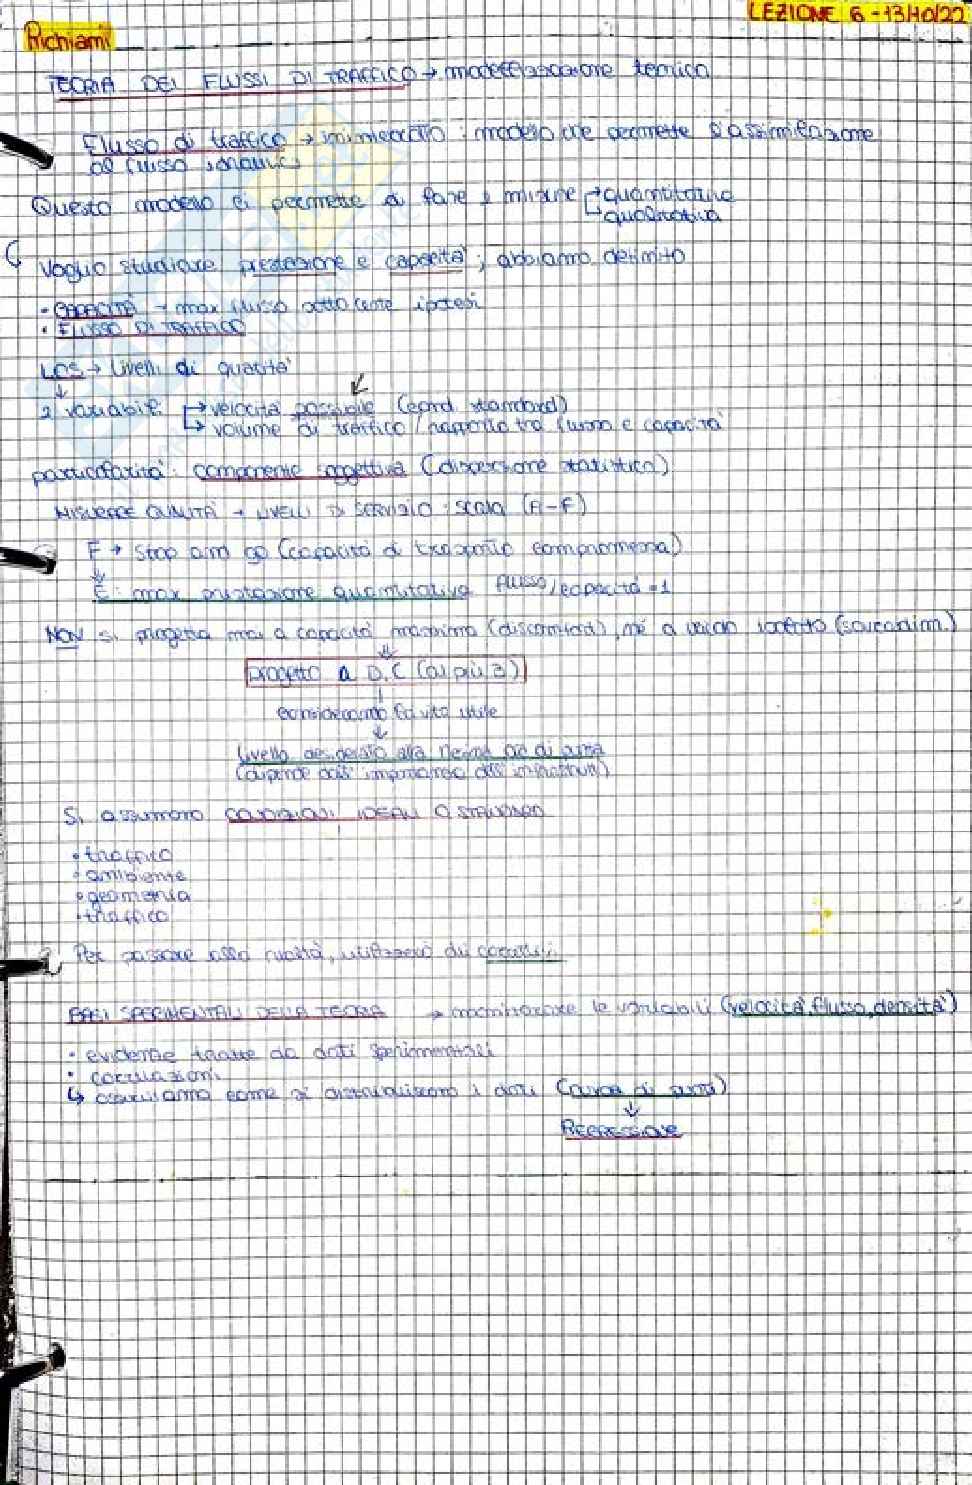 LEZIONE 6 - 13/10/22
Richiami
TEORIA DEI FLUSSI DI TRAFFICO → modellizzazione teorica
Flusso di traffico → ininterrotto : modello che permette l'assimilazione
al flusso idraulico
Questo modello ci permette di fare 2 misure → quantitativa
→ qualitativa
Voglio studiare prestazione e capacità ; abbiamo definito
• CAPACITÀ → max flusso sotto certe ipotesi
• FLUSSO DI TRAFFICO
LOS → Livelli di qualità
2 variabili → velocità possibile (cond. standard)
→ volume di traffico / rapporto tra flusso e capacità
particolarità : componente soggettiva (dispersione statistica)
MISURARE QUALITÀ → LIVELLI DI SERVIZIO : SCALA (A-F)
F → Stop and go (capacità di trasporto compromessa)
E : max prestazione quantitativa flusso/capacità = 1
NON si progetta mai a capacità massima (discomfort), né a veicolo isolato (sovradim.)
progetto a D, C (al più B)
considerando la vita utile
Livello desiderato alla fine
(dipende dall' importanza dell' infrastrutt.)
Si assumono CONDIZIONI IDEALI O STANDARD
• traffico
• ambiente
• geometria
• traffico
Per passare alla realtà, utilizzerò dei correttivi
BASI SPERIMENTALI DELLA TEORIA → monitorare le variabili (velocità, flusso, densità)
• evidenze tratte da dati sperimentali
• correlazioni
↳ osserviamo come si distribuiscono i dati (nuvola di punti)
REGRESSIONE